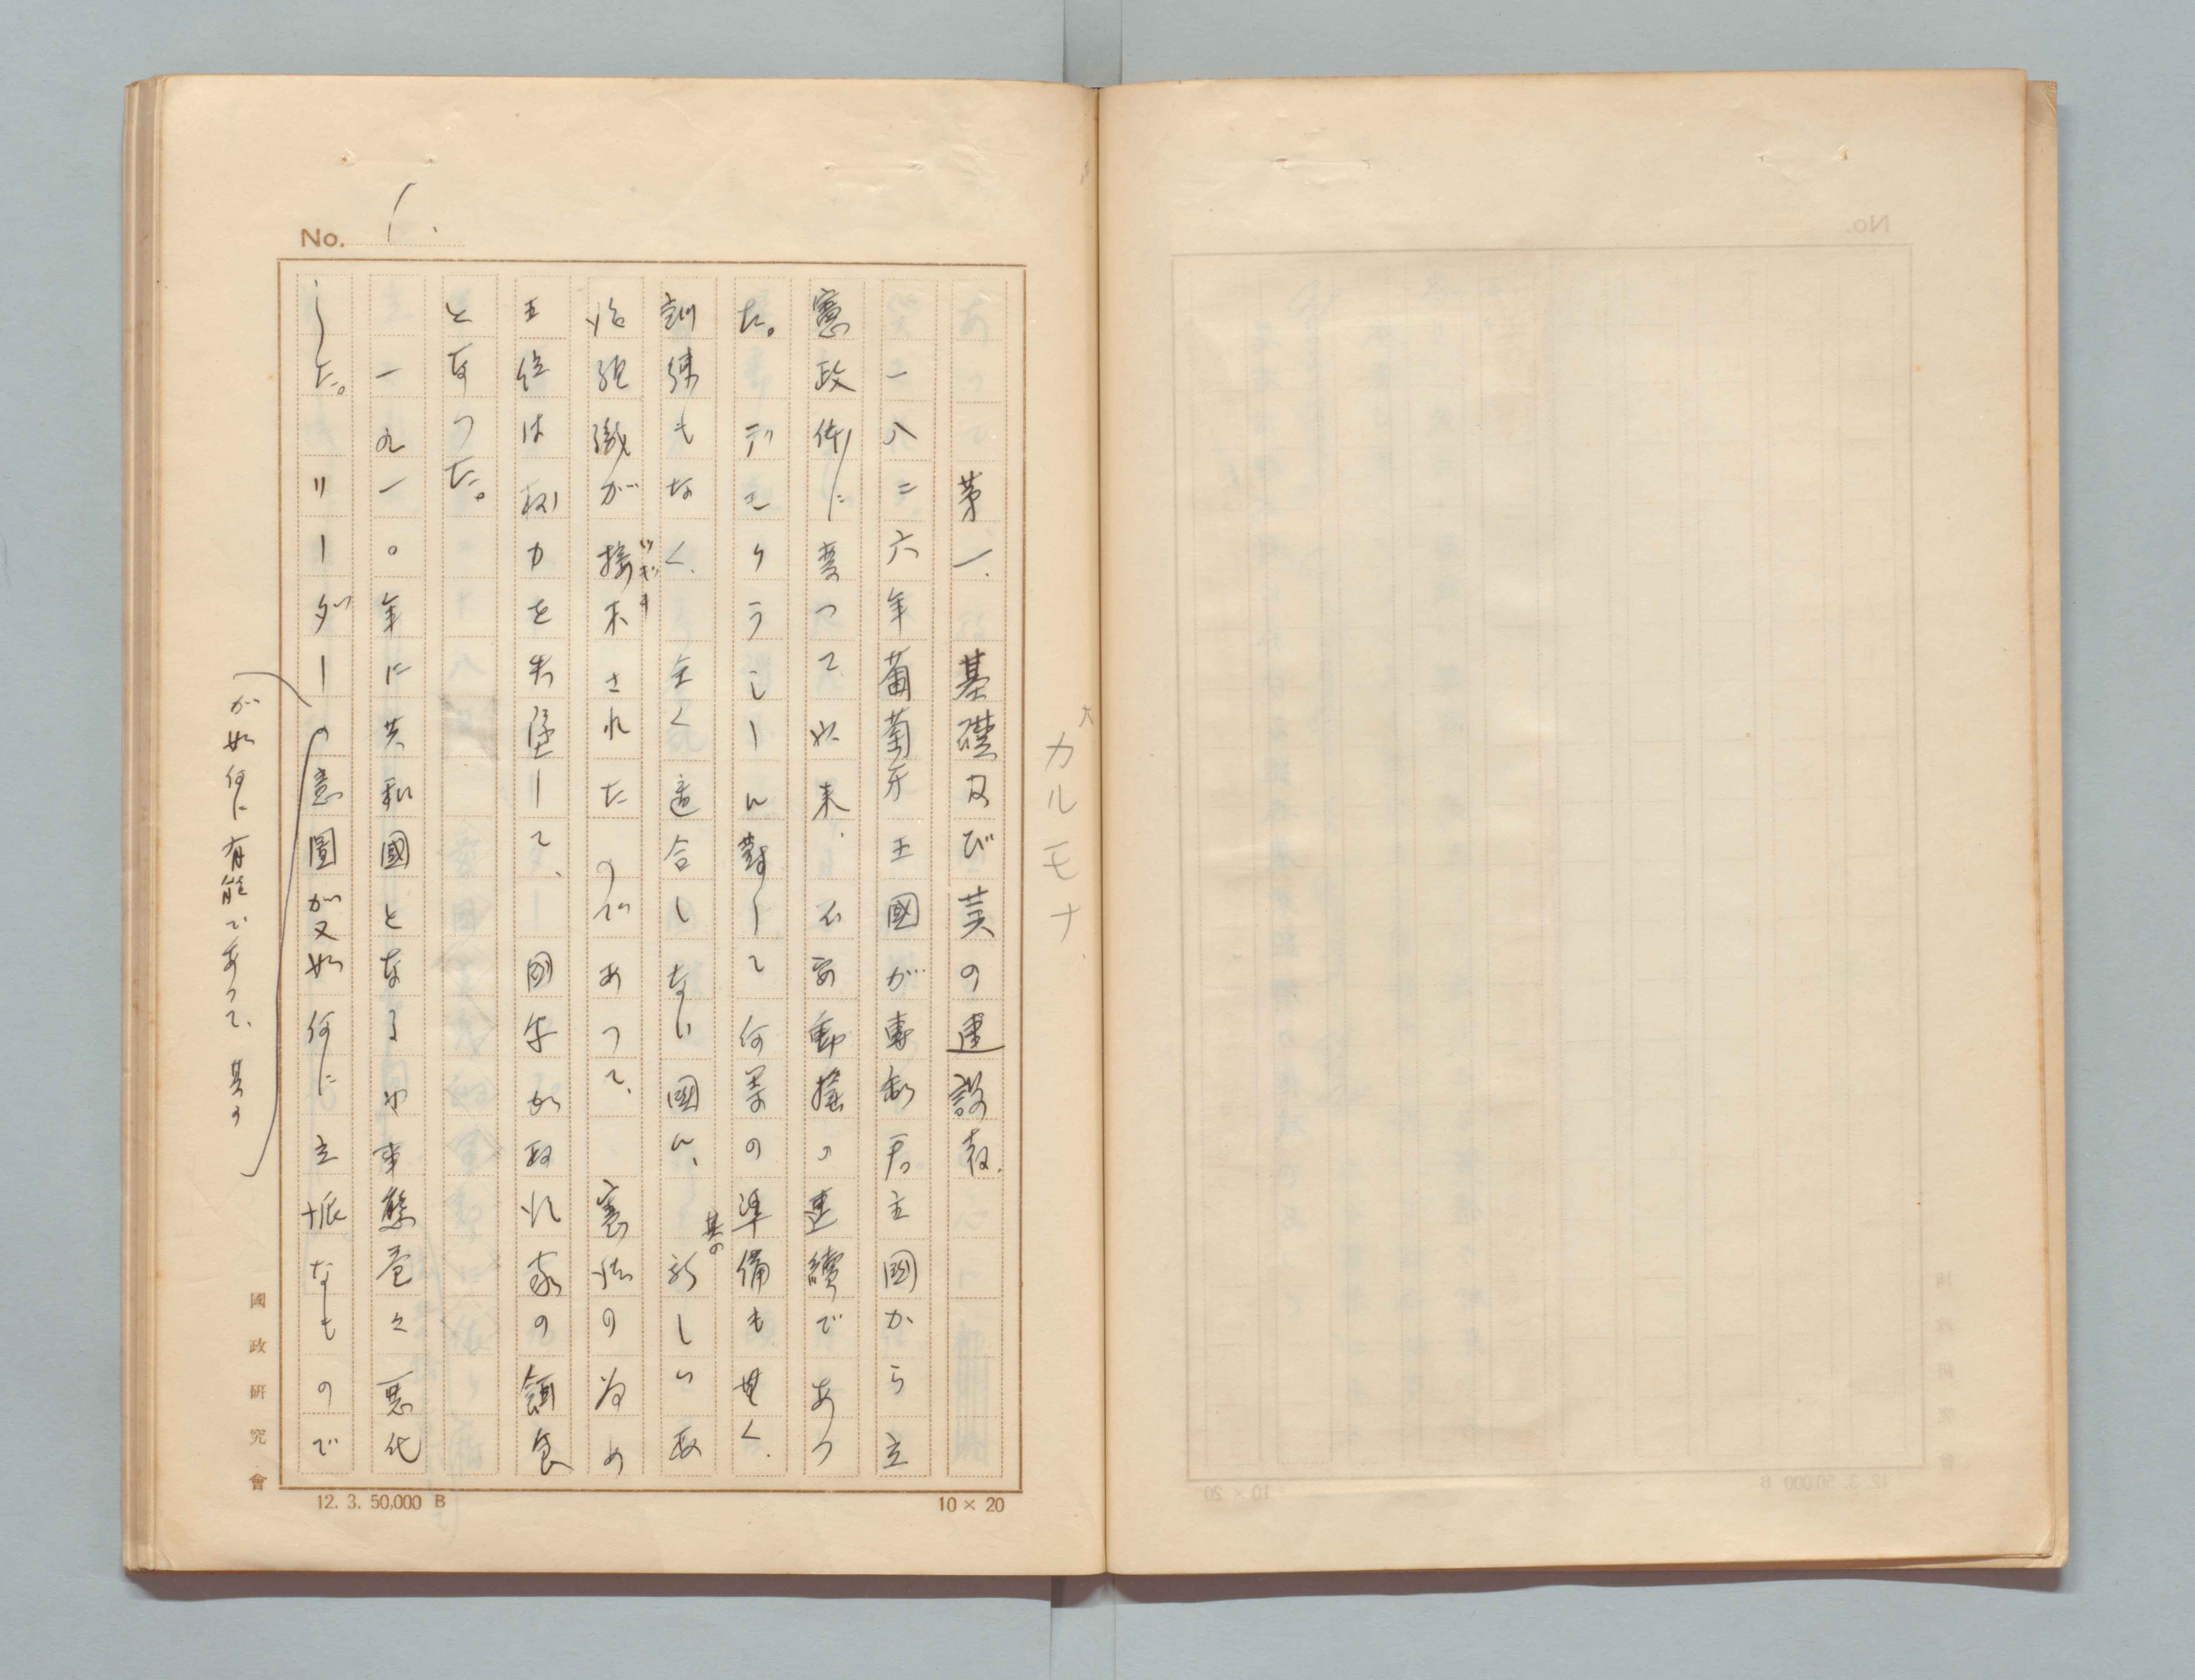 カルモナ
No. 1.
第一、基礎及び其の建設者、
一八二六年葡萄牙王國が專制君主國から立
憲政体に変つて以来、不安動揺の連續であつ
た。デモクラシーに對して何等の準備も無く、
訓練もなく、全く適合しない國に、其の新しい政
治組織が接木されたのであつて、憲法の為め
ツギキ
王位は权力を失墜して、國家が政治家の餌食
となつた。
一九一〇年に共和國となるや事態益々悪化
した。リーダーの意圖が又如何に立派なもので
が如何に有能であつて、其の
國政研究會
12. 3. 50,000 B
10 × 20